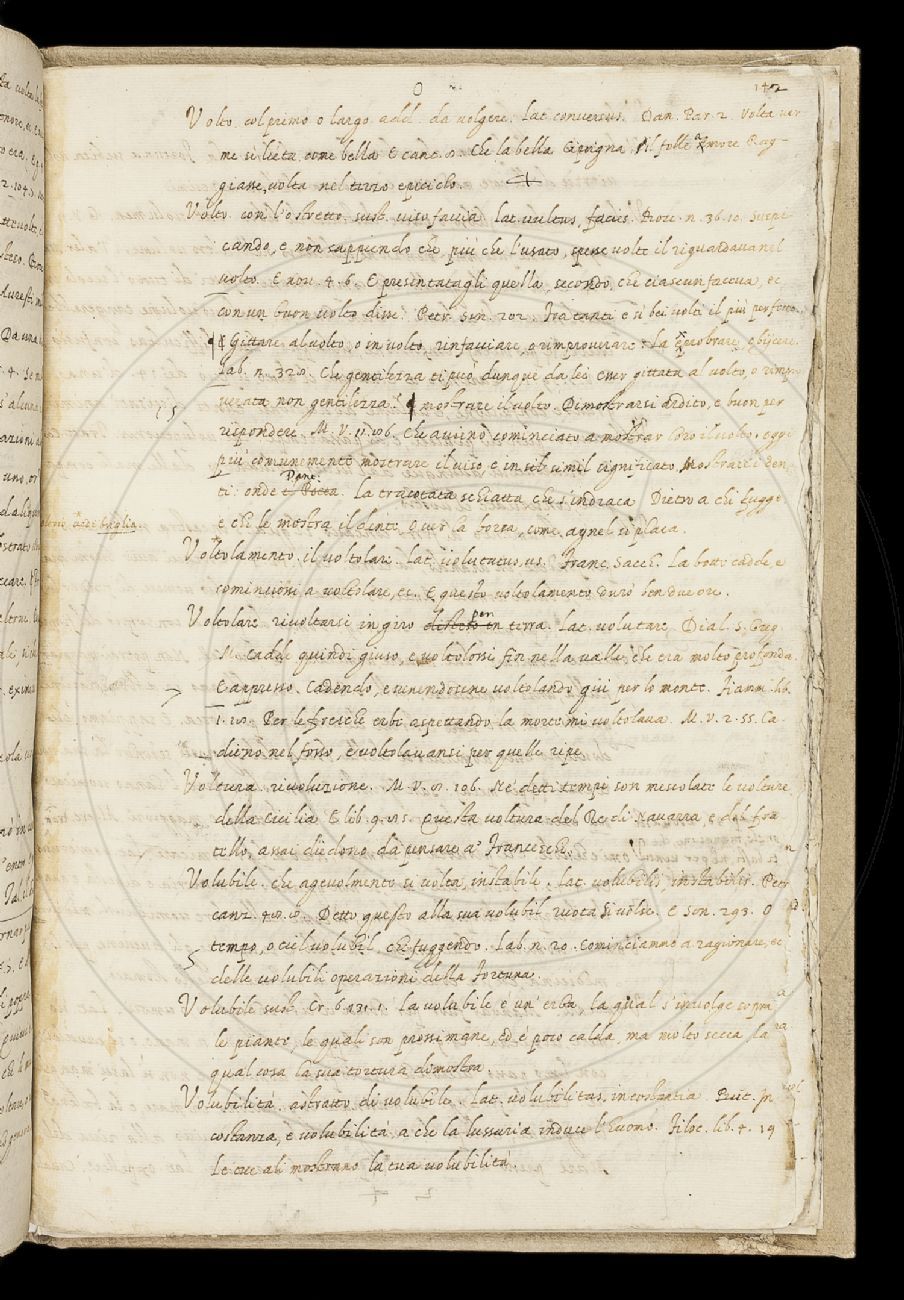 O
142
Volto col primo o largo add. da volgere. Lat. conversus. Dan. Par. 2. Volta ver
me si lieta come bella E canz. 8. Che la bella Ciprigna Il folle Amore Rag-
giasse, volta nel terzo epiciclo.
Volto con l'o stretto. sust. viso faccia Lat. vultus, facies. Bocc. n. 36. 10. Suspi
cando, e non sappiendo che più che l'usato, spesse volte il riguardava nel
volto. E nov. 4. 6. E presentatagli quella, secondo, che ciascun faceva, ec
con un buon volto disse. Petr. Son. 202. Tra tanti e si bei volti il più perfetto
¶ Gittare al volto, o in volto, rinfacciare, o rimproverare. La exprobrare, obijcere.
Lab. n. 328. Che gentilezza ti può dunque da lei esser gittata al volto, o rimpro
verata non gentilezza? ¶ mostrare il volto. Dimostrarsi ardito, e buon per
rispondere. M. V. Che avieno cominciato a mostrar loro il volto, oggi
più comunemente mostrare il viso, e in sul simil significato Mostrare i den
ti: onde Dane. La tracotata schiatta che s'indraca Dietro a chi fugge
e chi le mostra il dente, O ver la borsa, come agnel si placa.
vide briglia.
Voltolamento. il voltolare. Lat. volutatus, us. Franc. Sacch. La botte cadde, e
cominciossi a voltolare, ec. E questo voltolamento durò ben due ore.
Voltolare rivoltarsi in giro per terra. Lat. volutare Dial. S. Greg.
M. Cadde quindi giuso, e voltolossi fin nella valle, che era molto profonda.
E appresso. Cadendo, e venendosene voltolando giù per lo monte. Fiamm. lib.
1. 18. Per le fresche erbe aspettando la morte mi voltolava. M. V. 2. 55. Ca-
dieno nel fosso, e voltolavansi per quelle ripe
Voltura. rivoluzione. M. V. 8. 106. Ne' detti tempi son mescolate le volture
della Cicilia E lib. 9. Questa voltura del Re di Navarra, e del fra
tello, assai diedono da pensare a' Franceschi.
Volubile. che agevolmente si volta, instabile. Lat. volubilis, instabilis. Petr
canz. Detto questo alla sua volubil ruota Si volse. E Son. 293. O
tempo, o ciel volubil, che fuggendo. Lab. n. 20. Cominciammo a ragionare, ec
delle volubili operazioni della Fortuna.
Volubile sust. Cr. 6. 131. 1. La volubile è un'erba, la qual s'involge sopra
le piante, le quali son prossimane, ed è poco calda, ma molto secca, la
qual cosa la sua tortura dimostra
Volubilità, astratto di volubile. Lat. volubilitas, inconstantia. In
costanza, e volubilità, a che la lussuria induce l'huomo. Filoc. lib. 4. 19
Le tue ali mostrano la tua volubilità.